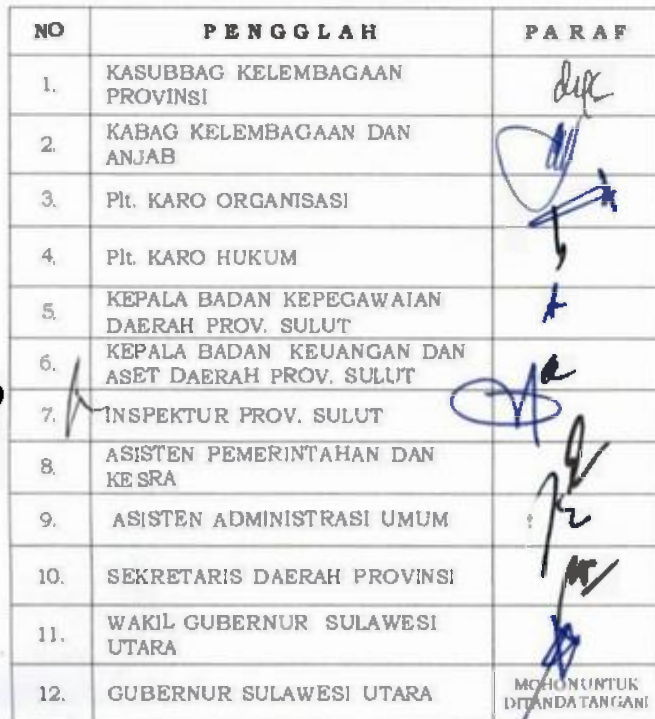 NO PENGGLAH PARAF
1. KASUBBAG KELEMBAGAAN
PROVINSI
2. KABAG KELEMBAGAAN DAN
ANJAB
3. Plt. KARO ORGANISASI
4. Plt. KARO HUKUM
5. KEPALA BADAN KEPEGAWAIAN
DAERAH PROV. SULUT
6. KEPALA BADAN KEUANGAN DAN
ASET DAERAH PROV. SULUT
7. INSPEKTUR PROV. SULUT
8. ASISTEN PEMERINTAHAN DAN
KESRA
9. ASISTEN ADMINISTRASI UMUM
10. SEKRETARIS DAERAH PROVINSI
11. WAKIL GUBERNUR SULAWESI
UTARA
12. GUBERNUR SULAWESI UTARA
MOHON UNTUK
DITANDATANGANI